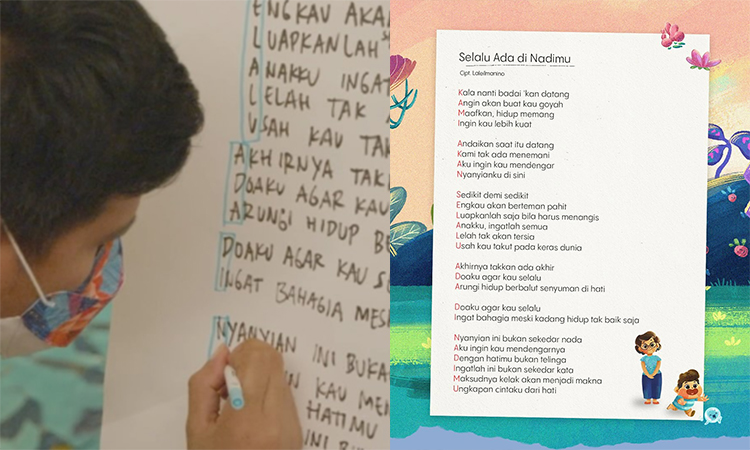 ENGKAU AKA
LUAPKANLAH
ANAKKU INGAT
LELAH TAK
USAH KAU TAK
AKHIRNYA TAK
DOAKU AGAR KAU
ARUNGI HIDUP BE
DOAKU AGAR KAU S
INGAT BAHAGIA MES
NYANYIAN INI BUKA
KAU MEN
HATIMU
INI
Selalu Ada di Nadimu
Cipt. Laleilmanino
Kala nanti badai 'kan datang
Angin akan buat kau goyah
Maafkan, hidup memang
Ingin kau lebih kuat
Andaikan saat itu datang
Kami tak ada menemani
Aku ingin kau mendengar
Nyanyianku di sini
Sedikit demi sedikit
Engkau akan berteman pahit
Luapkanlah saja bila harus menangis
Anakku, ingatlah semua
Lelah tak akan tersia
Usah kau takut pada keras dunia
Akhirnya takkan ada akhir
Doaku agar kau selalu
Arungi hidup berbalut senyuman di hati
Doaku agar kau selalu
Ingat bahagia meski kadang hidup tak baik saja
Nyanyian ini bukan sekedar nada
Aku ingin kau mendengarnya
Dengan hatimu bukan telinga
Ingatlah ini bukan sekedar kata
Maksudnya kelak akan menjadi makna
Ungkapan cintaku dari hati